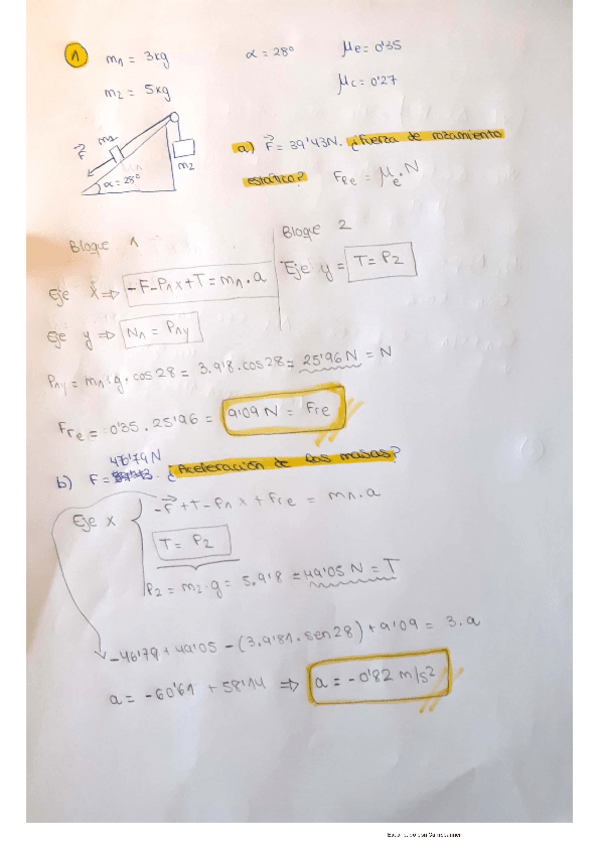 1 m1 = 3kg α = 28º μe = 0'35
m2 = 5kg μc = 0'27
F m1
α = 28º m2
a) F = 39'43N. ¿Fuerza de rozamiento
estático? Fre = μe · N
Bloque 1 Bloque 2
Eje x ⇒ -F-P1x+T = m1·a Eje y = T = P2
Eje y ⇒ N1 = P1y
P1y = m1·g·cos28 = 3·9'8·cos28 = 25'96 N = N
Fre = 0'35 · 25'96 = 9'09 N = Fre
46'79 N
b) F = ¿Aceleración de las masas?
Eje x -F + T - P1x + Fre = m1·a
T = P2
P2 = m2·g = 5·9'8 = 49'05 N = T
-46'79 + 49'05 - (3·9'81·sen28) + 9'09 = 3·a
a = -60'61 + 58'14 ⇒ a = -0'82 m/s²